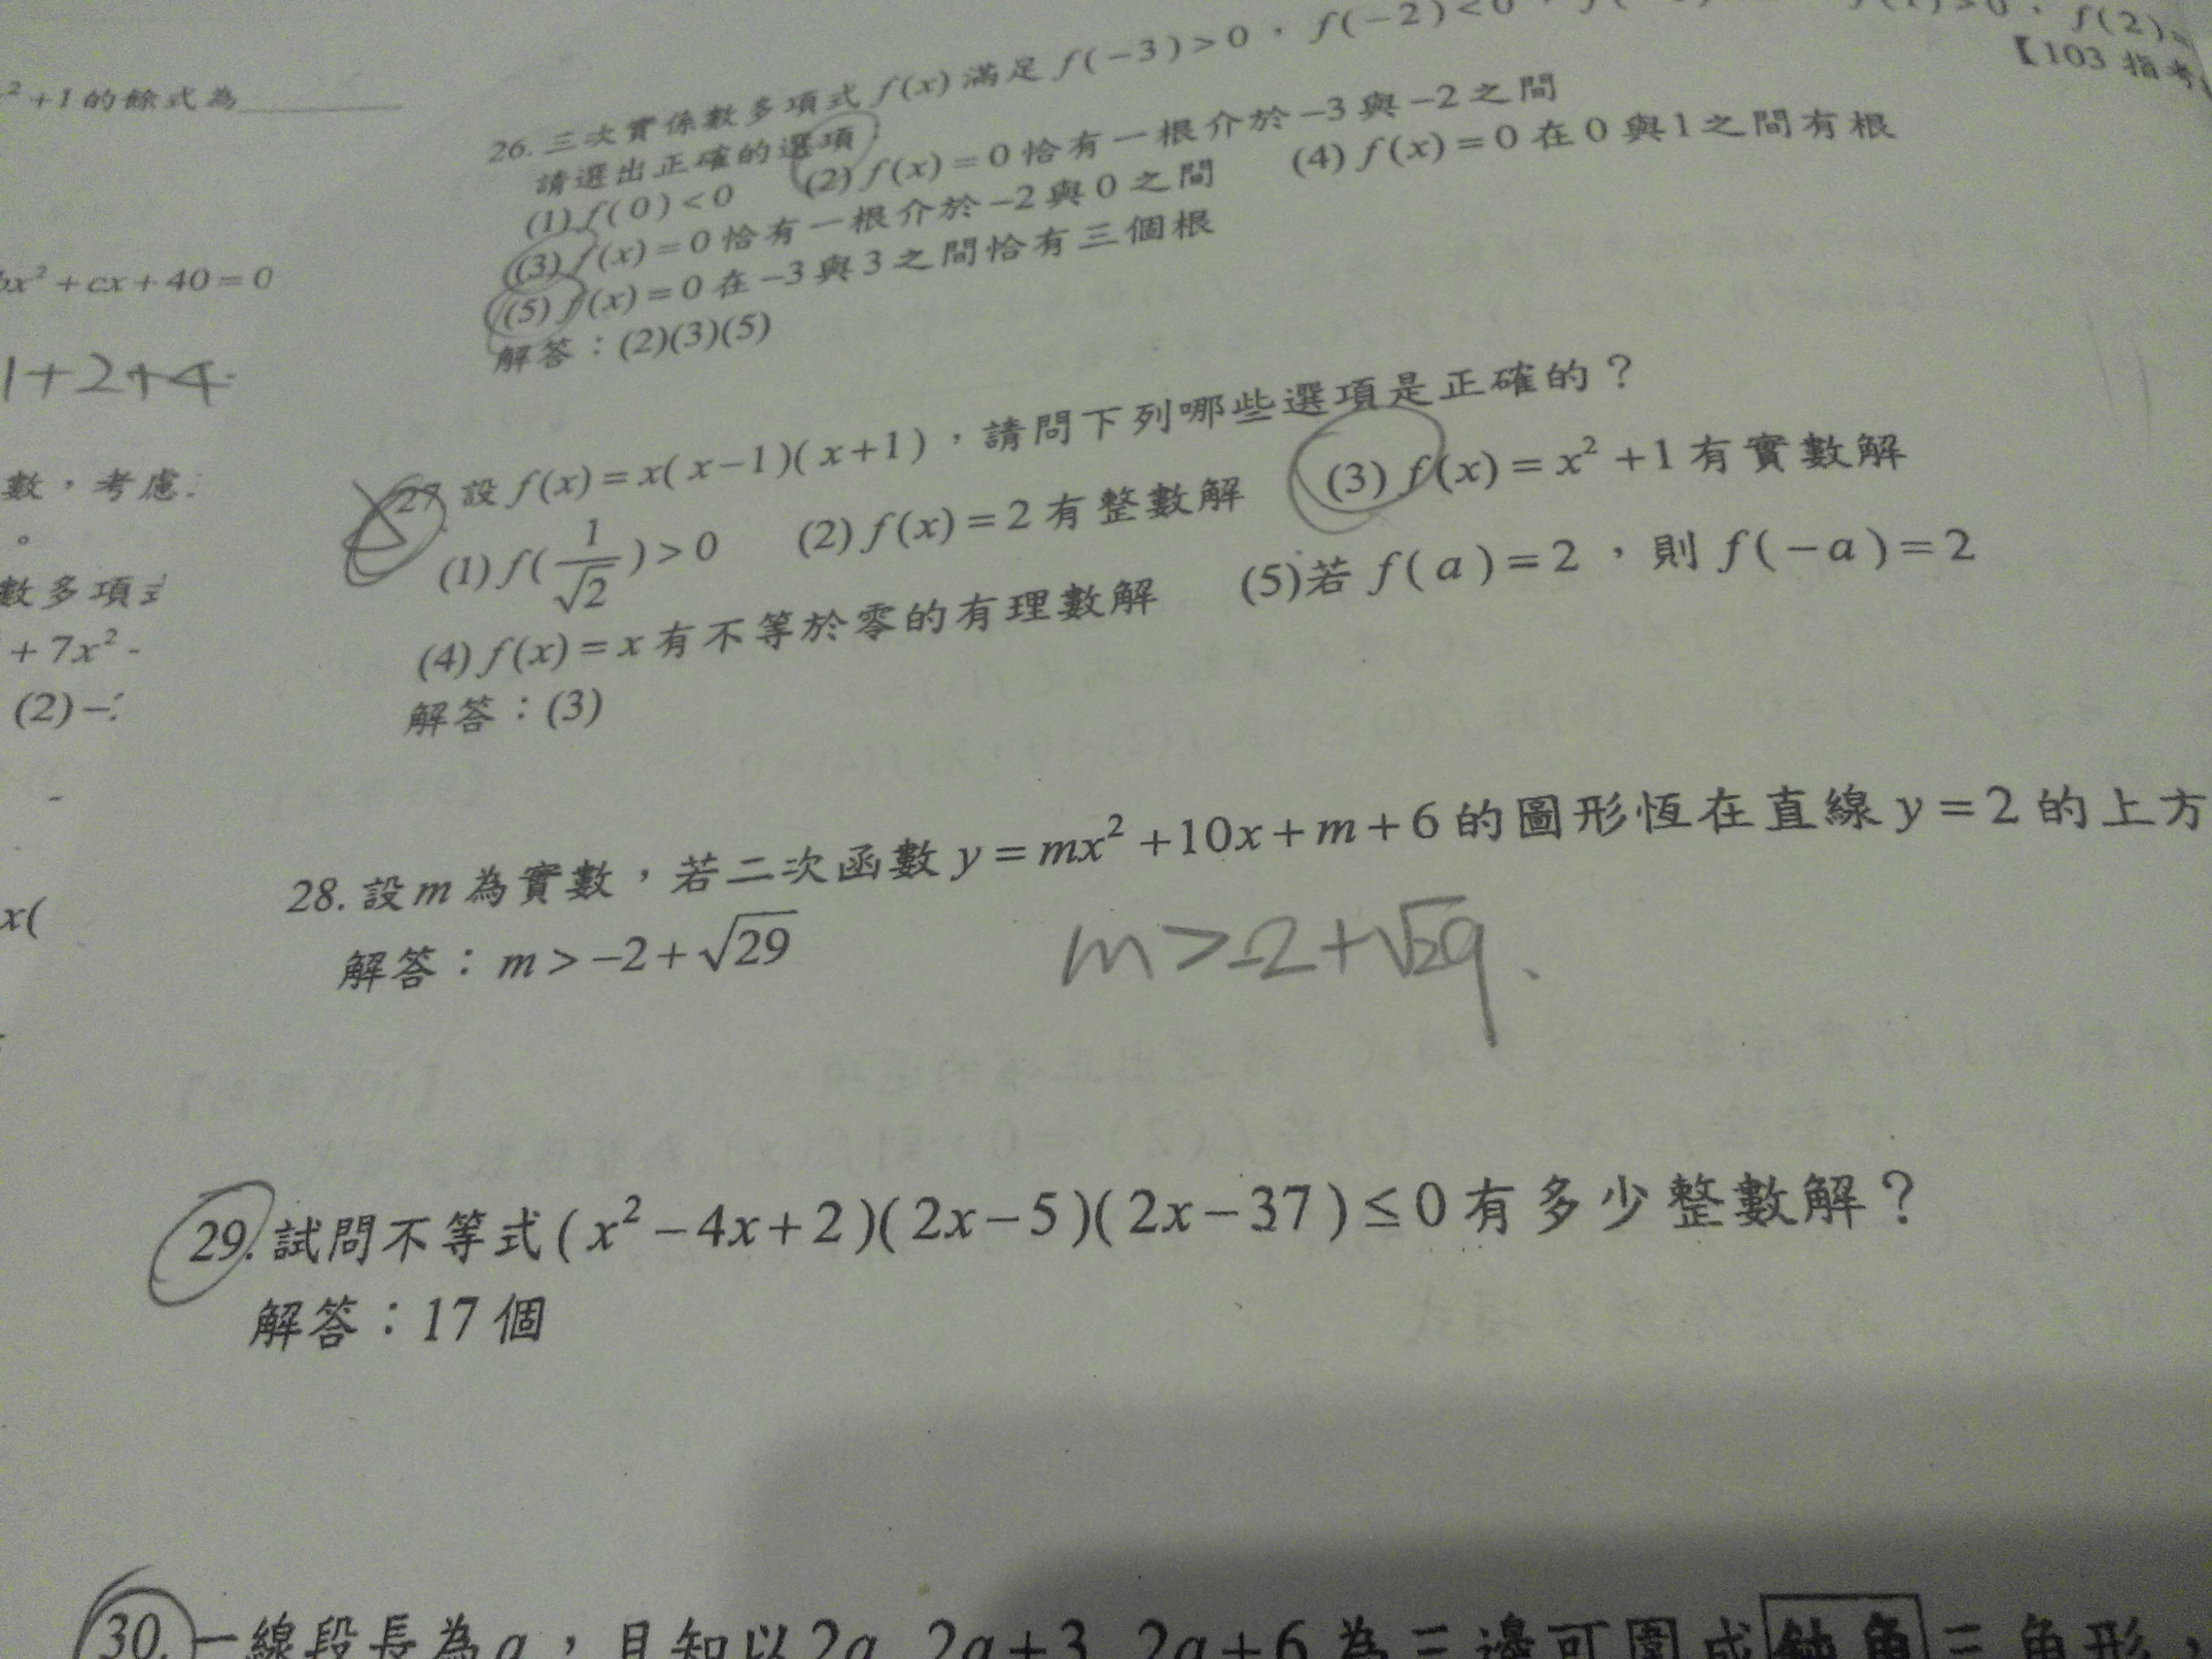 ²+1的餘式為
bx²+cx+40=0
1+2+4
數,考慮
。
數多項式
+7x²-
(2)-
x(
26.三次實係數多項式f(x)滿足f(-3)>0,f(-2)<0, f(2)=
【103指考
請選出正確的選項
(1)f(0)<0 (2)f(x)=0恰有一根介於-3與-2之間
(3)f(x)=0恰有一根介於-2與0之間 (4)f(x)=0在0與1之間有根
(5)f(x)=0在-3與3之間恰有三個根
解答:(2)(3)(5)
27.設f(x)=x(x-1)(x+1),請問下列哪些選項是正確的?
(1)f(1/√2)>0 (2)f(x)=2有整數解 (3)f(x)=x²+1有實數解
(4)f(x)=x有不等於零的有理數解 (5)若f(a)=2,則f(-a)=2
解答:(3)
28.設m為實數,若二次函數y=mx²+10x+m+6的圖形恆在直線y=2的上方
解答:m>-2+√29 m>-2+√29.
29.試問不等式(x²-4x+2)(2x-5)(2x-37)≤0有多少整數解?
解答:17個
30.一線段長為a,且知以2a,2a+3,2a+6為三邊可圍成鈍角三角形,